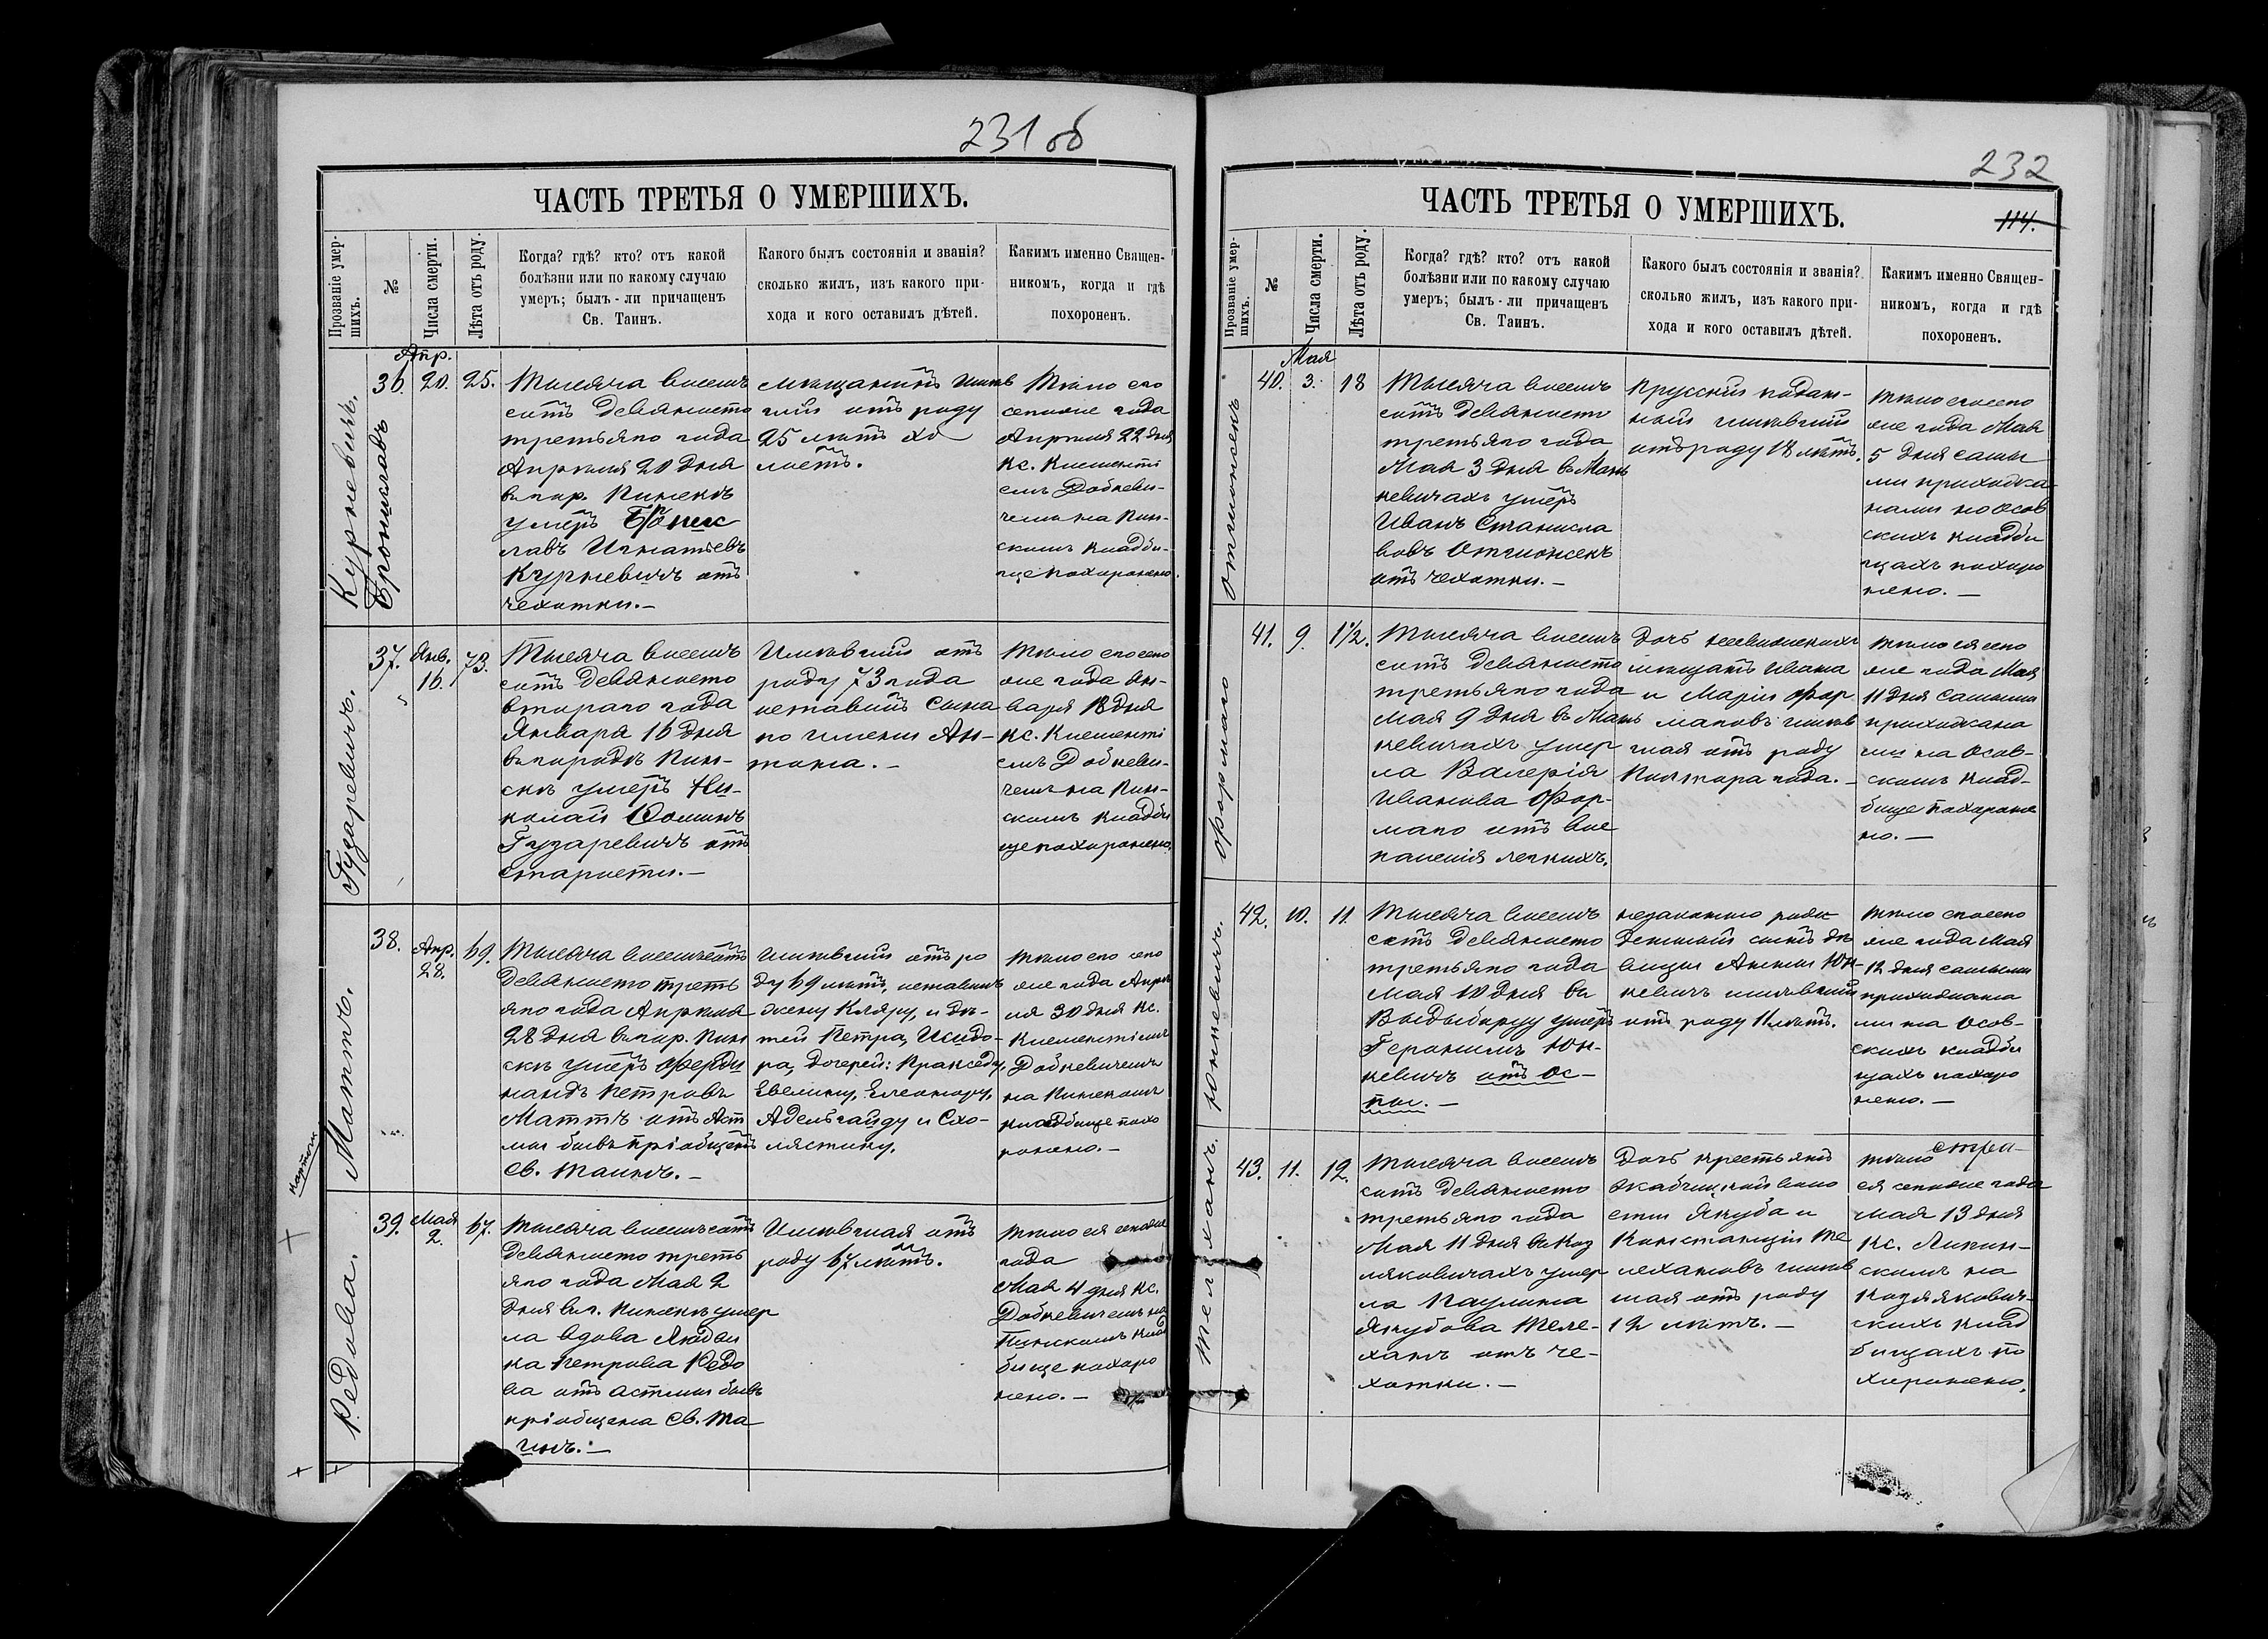 231 об
ЧАСТЬ ТРЕТЬЯ О УМЕРШИХЪ.
Прозваніе умер-
шихъ.
№
Числа смерти.
Лѣта отъ роду.
Когда? гдѣ? кто? отъ какой
болѣзни или по какому случаю
умеръ; былъ-ли причащенъ
Св. Таинъ.
Какого былъ состоянія и званія?
сколько жилъ, изъ какого при-
хода и кого оставилъ дѣтей.
Каким именно Священ-
никомъ, когда и гдѣ
похороненъ.
Курневичъ.
Брониславъ
36.
Апр.
20.
25.
Тысяча восемь
сотъ девяносто
третьяго года
Апрѣля 20 дня
въ гор. Пинскѣ
умеръ Бронис
лавъ Игнатьевъ
Курневичъ отъ
чехотки.—
мѣщанинъ имѣв
шій отъ роду
25 лѣтъ хо
лостъ.
Тѣло его
сегоже года
Апрѣля 22 дня
Кс. Климентi
емъ Добкеви-
чемъ на Пин-
скомъ кладби-
ще похоронено.
Гузаревичъ.
37.
Янв.
16.
73.
Тысяча восемь
сотъ девяносто
втораго года
Января 16 дня
въ городѣ Пин-
скѣ умеръ Ни-
колай Ѳоминъ
Гузаревичъ отъ
старости.—
Имѣвшій отъ
роду 73 года
оставивъ сына
по имени Ан-
тона.—
Тѣло его сего
же года Ян-
варя 18 дня
Кс. Климентi
емъ Добкеви-
чемъ на Пин-
скомъ кладби
ще похоронено.
Маттъ.
38.
Апр.
28.
69.
Тысяча восемьсотъ
девяносто треть
яго года Апрѣля
28 дня въ гор. Пин
скѣ умеръ Ферди
нандъ Петровъ
Маттъ отъ Аст
мы бывъ пріобщенъ
Св. Таинъ.—
Имѣвшій отъ ро
ду 69 лѣтъ, оставивъ
жену Кляру, и дѣ-
тей Петра, Исидо-
ра, дочерей: Пракседу,
Эвелину, Элеонору,
Адельгайду и Схо-
лястику.
Тѣло его сего
же года Апрѣ
ля 30 дня Кс.
Климентіемъ
Добкевичемъ
на Пинскомъ
кладбище похо
ронено.—
Редова.
39.
Мая
2.
67.
Тысяча восемьсотъ
девяносто треть
яго года Мая 2
дня въ г. Пинскѣ умер
ла вдова Людви
ка Петрова Редо
ва отъ астмы бывъ
пріобщена Св. Та
инъ.—
Имѣвшая отъ
роду 67 лѣтъ.
Тѣло ея сегоже
года
Мая 4 дня Кс.
Добкевичемъ на
Пинскомъ клад
бище похоро
нено.—
232
114.
ЧАСТЬ ТРЕТЬЯ О УМЕРШИХЪ.
Прозваніе умер-
шихъ.
№
Числа смерти.
Лѣта отъ роду.
Когда? гдѣ? кто? отъ какой
болѣзни или по какому случаю
умеръ; былъ-ли причащенъ
Св. Таинъ.
Какого былъ состоянія и званія?
сколько жилъ, изъ какого при-
хода и кого оставилъ дѣтей.
Каким именно Священ-
никомъ, когда и гдѣ
похороненъ.
40.
Мая
3.
18
Тысяча восемь
сотъ девяносто
третьяго года
Мая 3 дня въ Мань
кевичахъ умеръ
Иванъ Станисла
вовъ
отъ чехотки.—
Прусскій подан-
ный имѣвшій
отъ роду 18 лѣтъ.
Тѣло его сего
же года Мая
5 дня самы
ми прихожа-
нами на Осов
скихъ кладби
щахъ похоро
нено.—
Формаго
41.
9.
1½.
Тысяча восемь
сотъ девяносто
третьяго года
Мая 9 дня въ Мань
кевичахъ умер
ла Валерія
Иванова Фор-
маго отъ вос
паленія легкихъ.
Дочь
мѣщанъ Ивана
и Маріи Фор
маговъ имѣв
шая отъ роду
полтора года.—
Тѣло ея сего
же года Мая
11 дня самыми
прихожана
ми на Осов-
скомъ клад-
бище похороне
но.—
Юнкевичъ.
42.
10.
11.
Тысяча восемь
сотъ девяносто
третьяго года
Мая 10 дня въ
умеръ
Геронимъ Юн-
кевичъ отъ ос-
пы.—
незаконно рож
денный сынъ дѣ
вицы Анны Юн-
кевичъ имѣвшій
отъ роду 11 лѣтъ.
Тѣло его сего
же года Мая
12 дня самыми
прихожана
ми на Осов-
скихъ кладби
щахъ похоро
нено.—
Телеханъ.
43.
11.
12.
Тысяча восемь
сотъ девяносто
третьяго года
Мая 11 дня въ Коз
ляковичахъ умер
ла Паулина
Якубова Теле-
ханъ отъ че-
хотки.—
Дочь крестьянъ
воло
сти Якуба и
Константіи Те
лехановъ имѣв
шая отъ роду
12 лѣтъ.—
Тѣло
ея сегоже года
Мая 13 дня
Кс. Липин-
скимъ на
Козляковичъ-
скихъ клад
бищахъ по
хоронено.